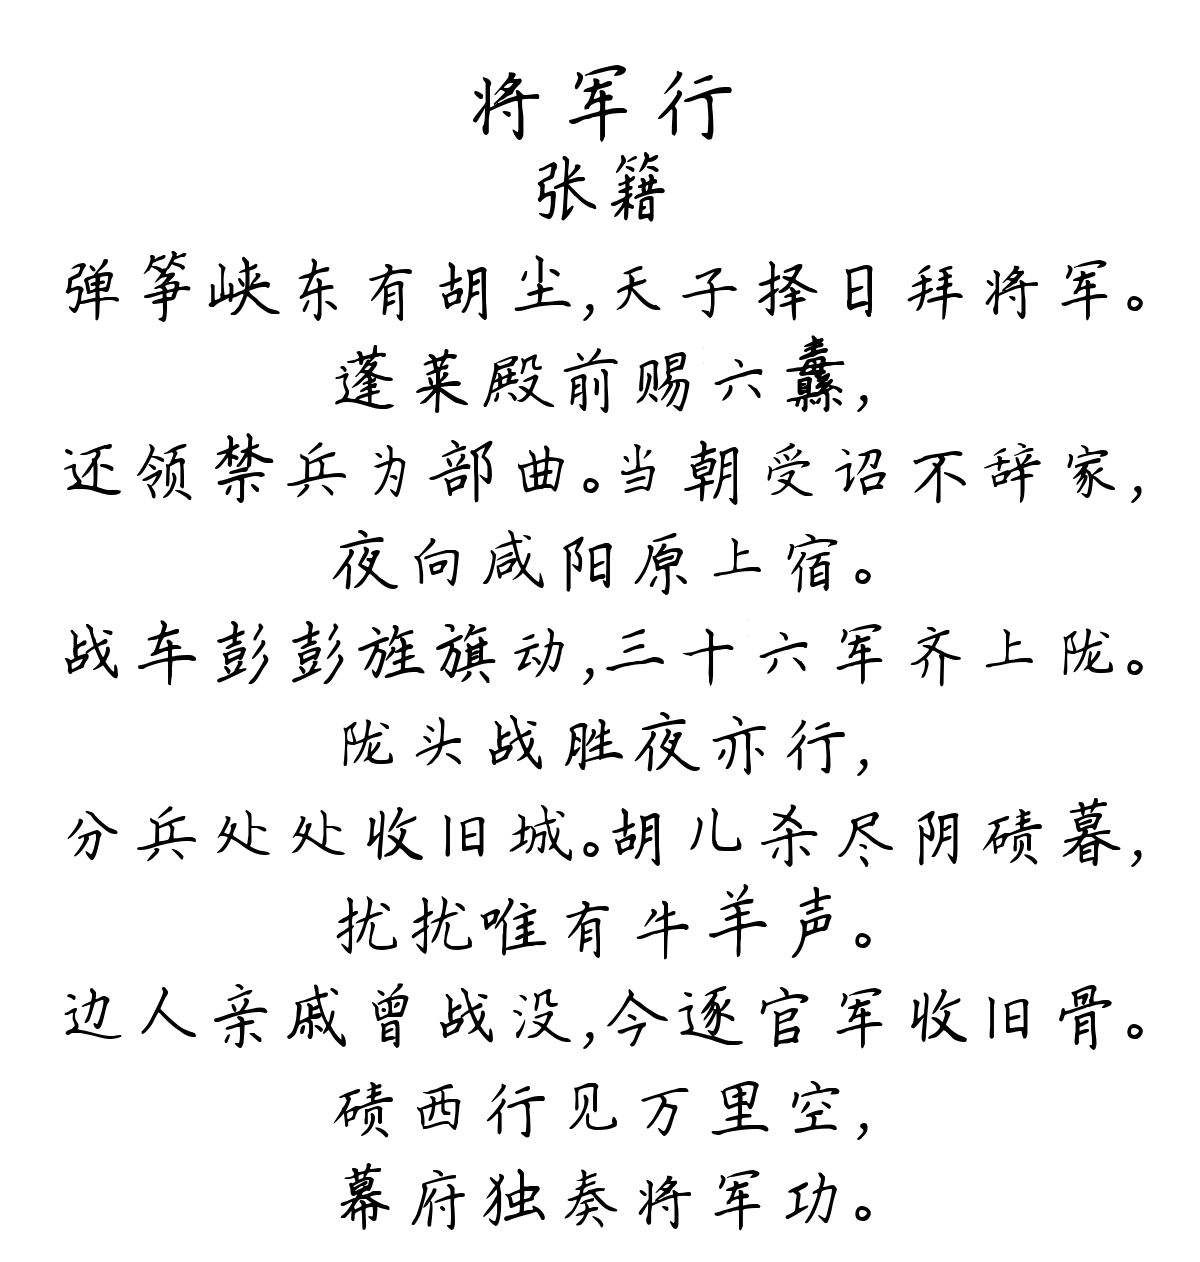 将军行
张籍
弹筝峡东有胡尘,天子择日拜将军。
蓬莱殿前赐六纛,
还领禁兵为部曲。当朝受诏不辞家,
夜向咸阳原上宿。
战车彭彭旌旗动,三十六军齐上陇。
陇头战胜夜亦行,
分兵处处收旧城。胡儿杀尽阴碛暮,
扰扰唯有牛羊声。
边人亲戚曾战没,今逐官军收旧骨。
碛西行见万里空,
幕府独奏将军功。